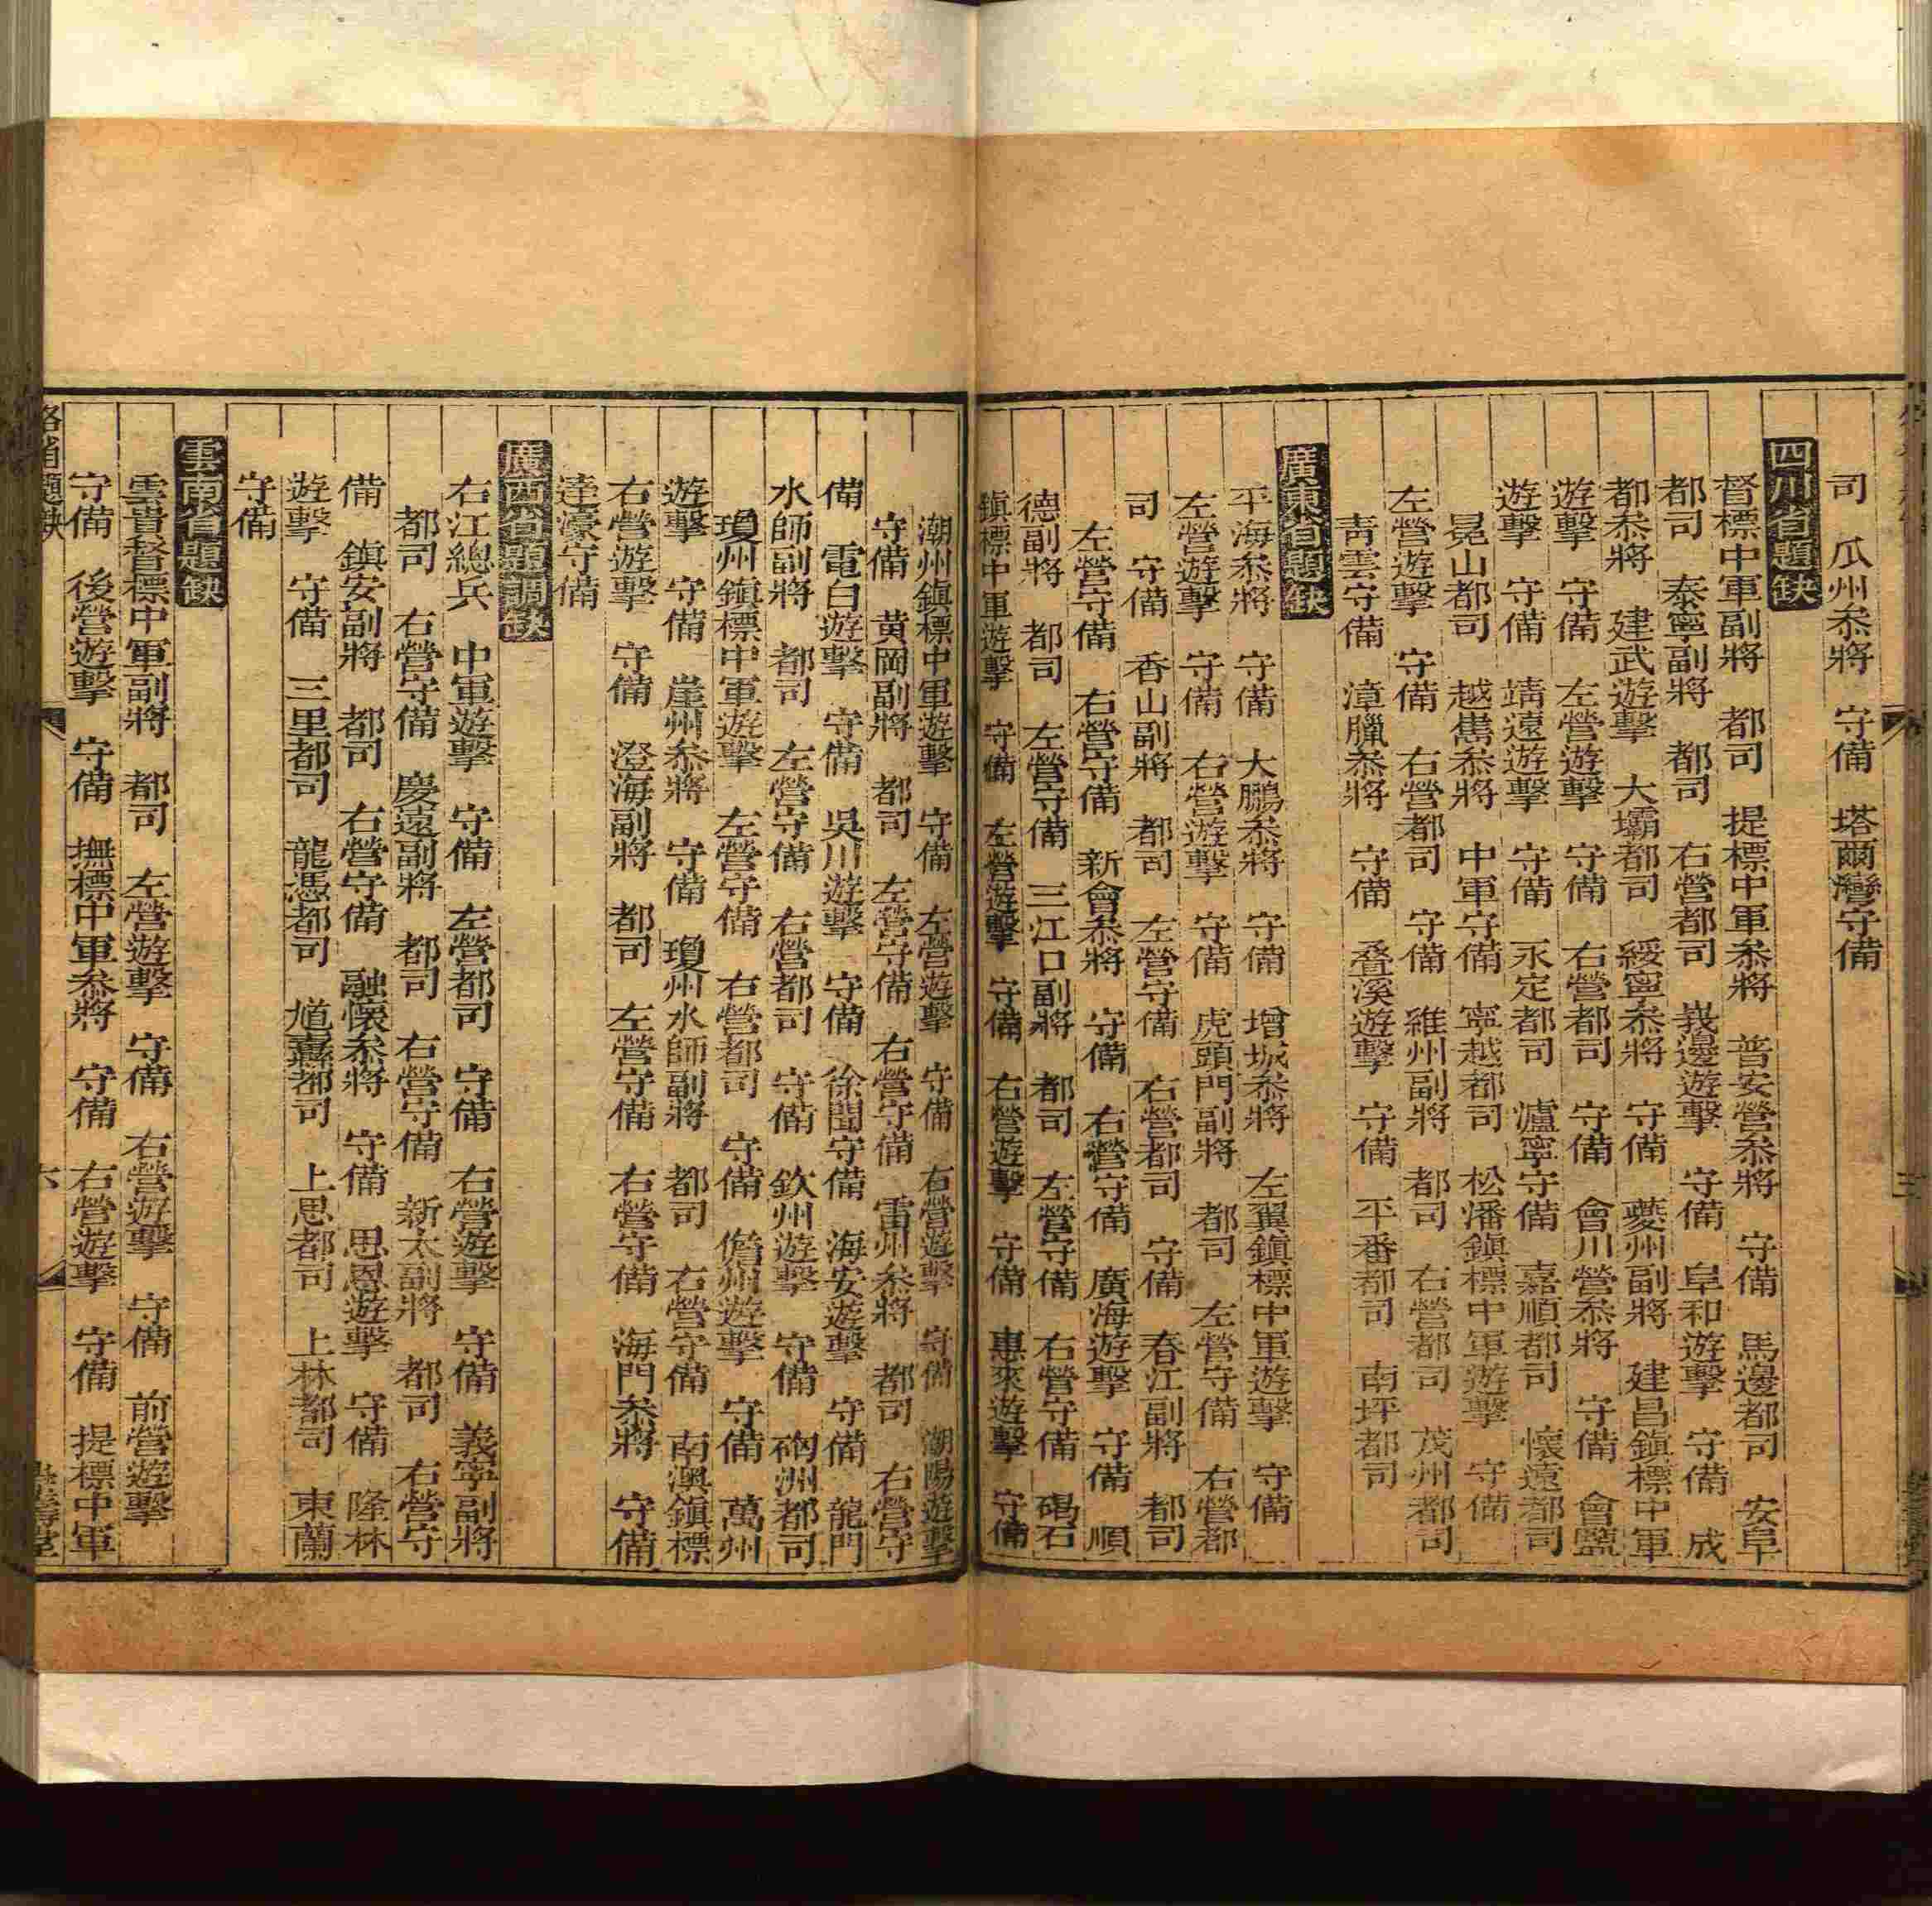 司　瓜州叅將　守備　塔爾灣守備
四川省題缺
督標中軍副將　都司　提標中軍叅將　普安營叅將　守備　馬邊都司　安阜
都司　泰寧副將　都司　右營都司　峩邊遊擊　守備　阜和遊擊　守備　成
都叅將　建武遊擊　大壩都司　綏寧叅將　守備　夔州副將　建昌鎮標中軍
遊擊　守備　左營遊擊　守備　右營都司　守備　會川營叅將　守備　會鹽
遊擊　守備　靖遠遊擊　守備　永定都司　瀘寧守備　嘉順都司　懷遠都司
冕山都司　越嶲叅將　中軍守備　寧越都司　松潘鎮標中軍遊擊　守備
左營遊擊　守備　右營都司　守備　維州副將　都司　右營都司　茂州都司
青雲守備　漳臘叅將　守備　叠溪遊擊　守備　平番都司　南坪都司
廣東省題缺
平海叅將　守備　大鵬叅將　守備　增城叅將　左翼鎮標中軍遊擊　守備
左營遊擊　守備　右營遊擊　守備　虎頭門副將　都司　左營守備　右營都
司　守備　香山副將　都司　左營守備　右營都司　守備　春江副將　都司
左營守備　右營守備　新會叅將　守備　右營守備　廣海遊擊　守備　順
德副將　都司　左營守備　三江口副將　都司　左營守備　右營守備　碣石
鎮標中軍遊擊　守備　左營遊擊　守備　右營遊擊　守備　惠來遊擊　守備
潮州鎮標中軍遊擊　守備　左營遊擊　守備　右營遊擊　守備　潮陽遊擊
守備　黃岡副將　都司　左營守備　右營守備　雷州叅將　都司　右營守
備　電白遊擊　守備　吳川遊擊　守備　徐聞守備　海安遊擊　守備　龍門
水師副將　都司　左營守備　右營都司　守備　欽州遊擊　守備　硇洲都司
瓊州鎮標中軍遊擊　左營守備　右營都司　守備　儋州遊擊　守備　萬州
遊擊　守備　崖州叅將　守備　瓊州水師副將　都司　右營守備　南澳鎮標
右營遊擊　守備　澄海副將　都司　左營守備　右營守備　海門叅將　守備
達濠守備
廣西省題調缺
右江總兵　中軍遊擊　守備　左營都司　守備　右營遊擊　守備　義寧副將
都司　右營守備　慶遠副將　都司　右營守備　新太副將　都司　右營守
備　鎮安副將　都司　右營守備　融懷叅將　守備　思恩遊擊　守備　隆林
遊擊　守備　三里都司　龍憑都司　馗纛都司　上思都司　上林都司　東蘭
守備
雲南省題缺
雲貴督標中軍副將　都司　左營遊擊　守備　右營遊擊　守備　前營遊擊
守備　後營遊擊　守備　撫標中軍叅將　守備　右營遊擊　守備　提標中軍
各省題缺　六